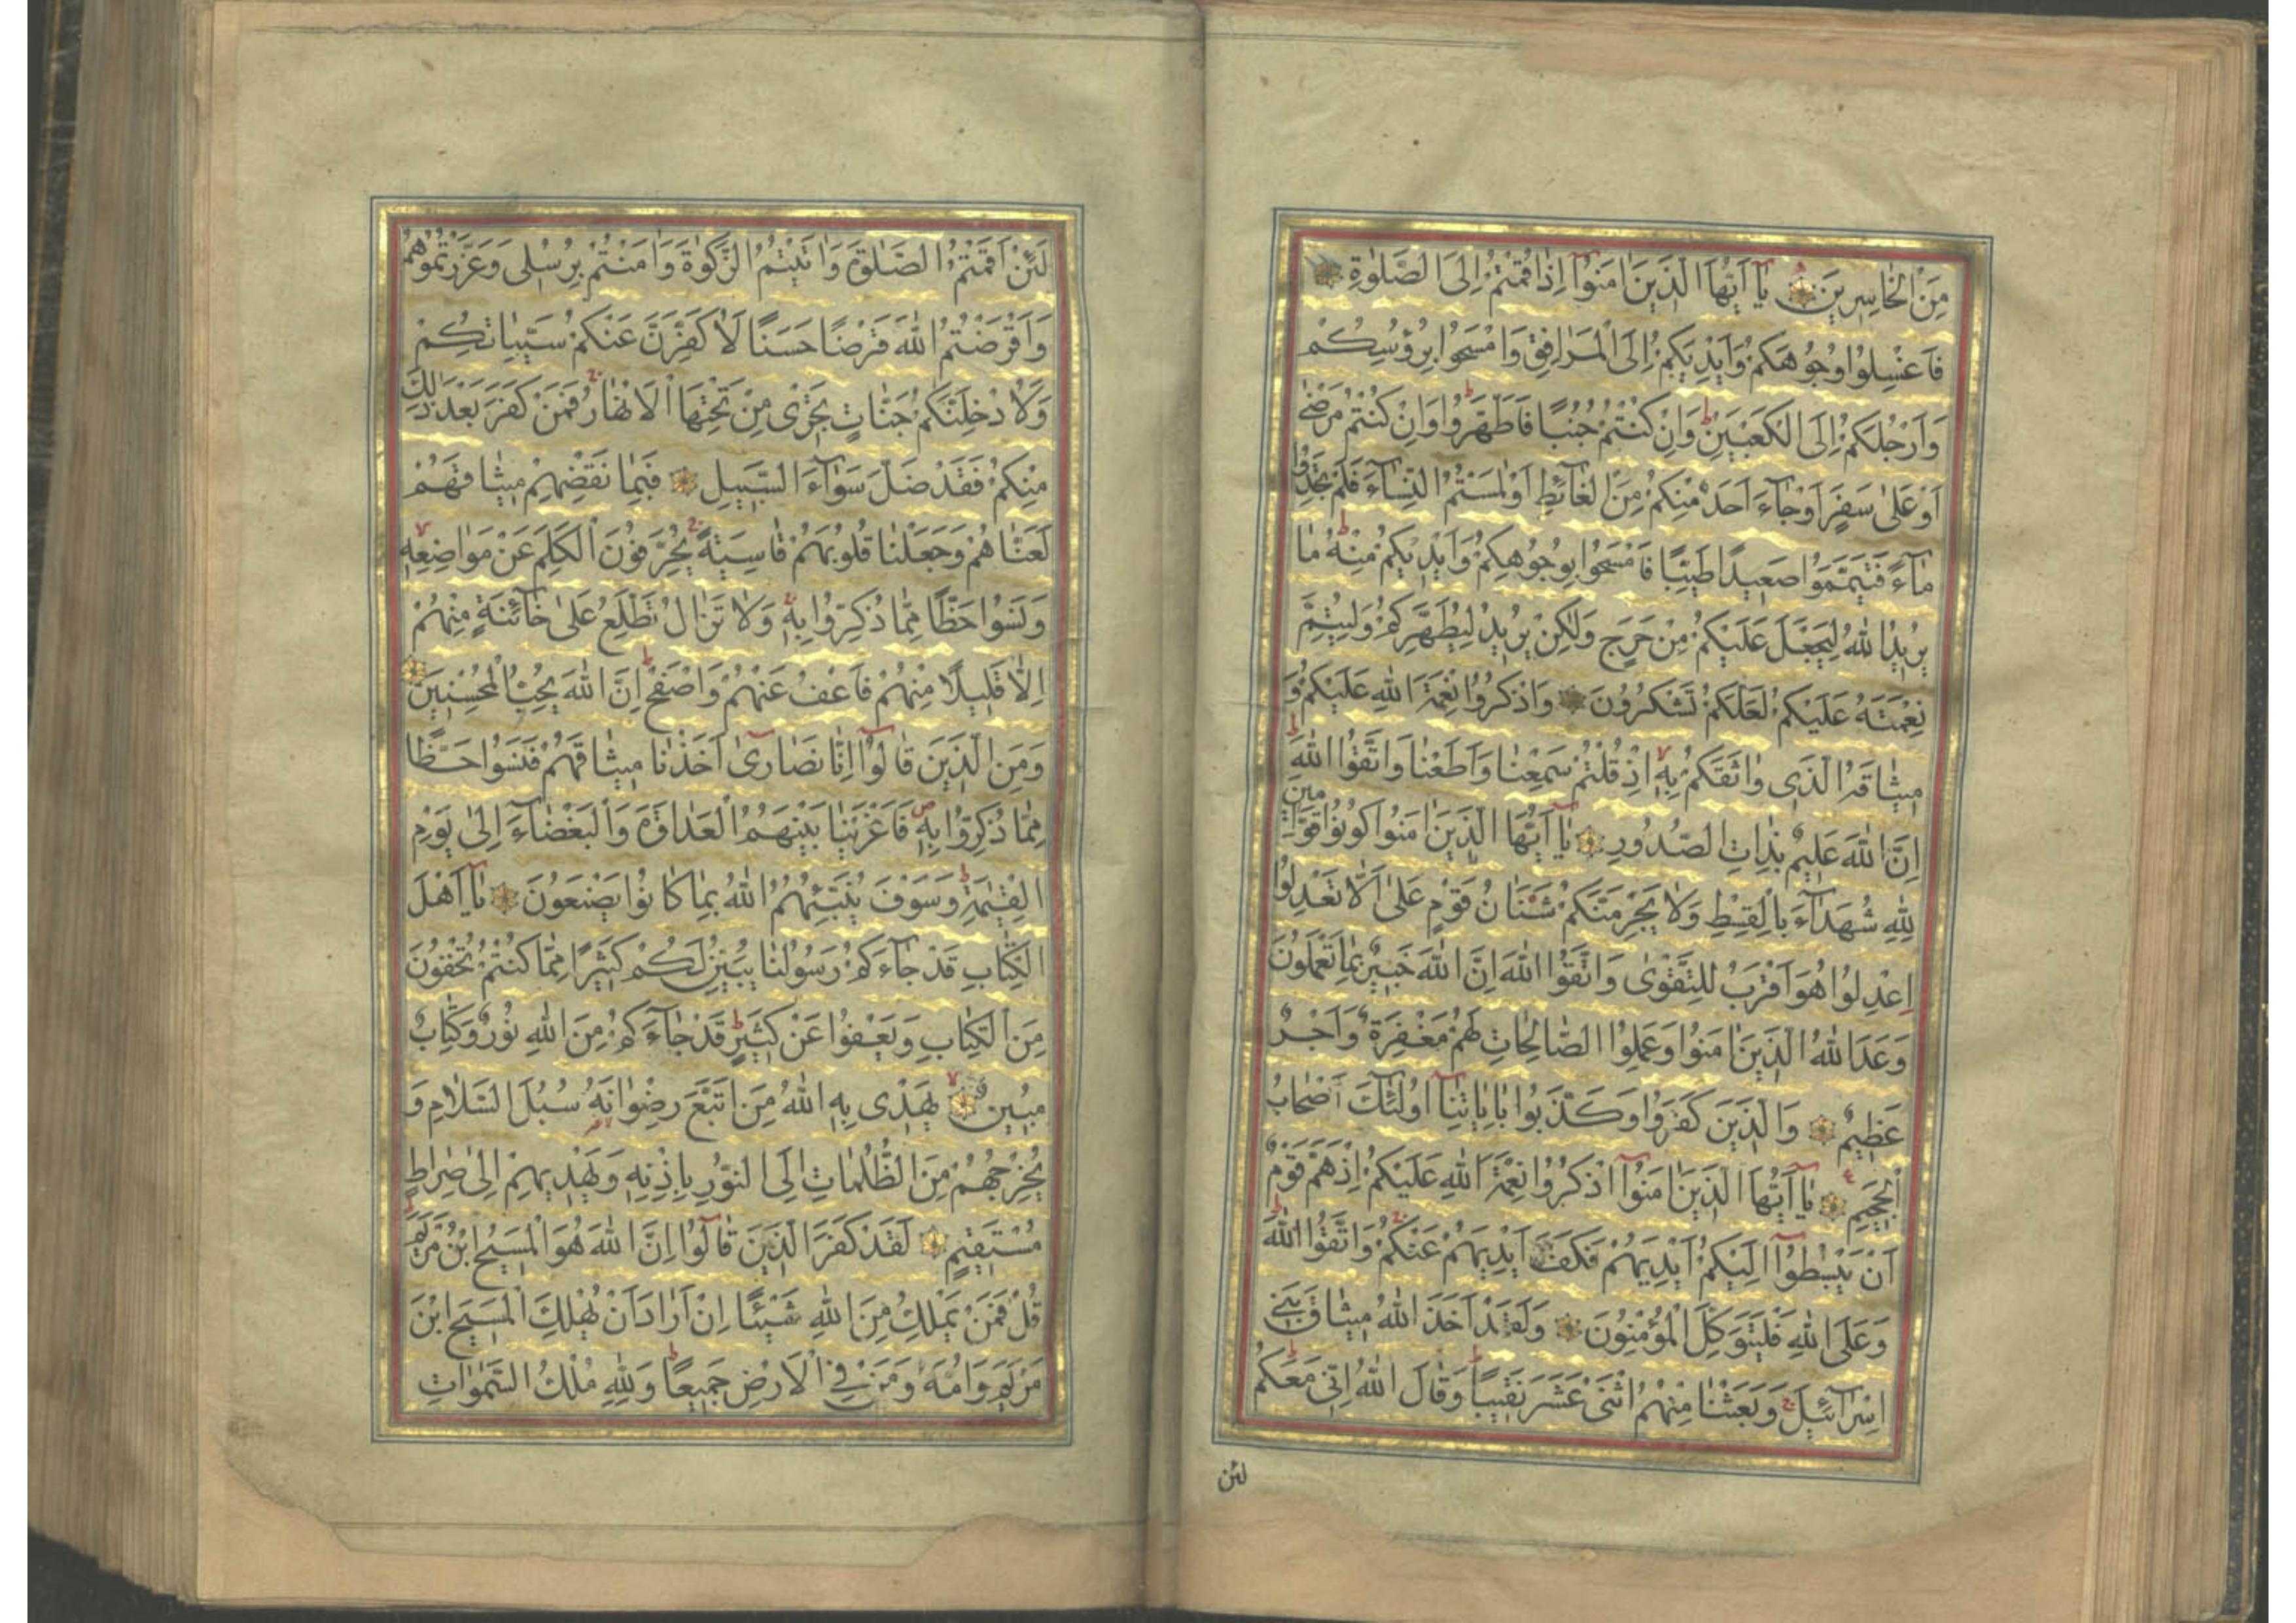 مِنَ الْخَاسِرِينَ يَا أَيُّهَا الَّذِينَ اٰمَنُوا إِذَا قُمْتُمْ إِلَى الصَّلٰوةِ
فَاغْسِلُوا وُجُوهَكُمْ وَأَيْدِيَكُمْ إِلَى الْمَرَافِقِ وَامْسَحُوا بِرُؤُسِكُمْ
وَأَرْجُلَكُمْ إِلَى الْكَعْبَيْنِ وَإِنْ كُنْتُمْ جُنُبًا فَاطَّهَّرُوا وَإِنْ كُنْتُمْ مَرْضٰى
أَوْ عَلٰى سَفَرٍ أَوْ جَآءَ أَحَدٌ مِنْكُمْ مِنَ الْغَآئِطِ أَوْ لٰمَسْتُمُ النِّسَآءَ فَلَمْ تَجِدُوا
مَآءً فَتَيَمَّمُوا صَعِيدًا طَيِّبًا فَامْسَحُوا بِوُجُوهِكُمْ وَأَيْدِيكُمْ مِنْهُ مَا
يُرِيدُ اللّٰهُ لِيَجْعَلَ عَلَيْكُمْ مِنْ حَرَجٍ وَلٰكِنْ يُرِيدُ لِيُطَهِّرَكُمْ وَلِيُتِمَّ
نِعْمَتَهُ عَلَيْكُمْ لَعَلَّكُمْ تَشْكُرُونَ وَاذْكُرُوا نِعْمَةَ اللّٰهِ عَلَيْكُمْ وَ
مِيثَاقَهُ الَّذِي وَاثَقَكُمْ بِهِ إِذْ قُلْتُمْ سَمِعْنَا وَأَطَعْنَا وَاتَّقُوا اللّٰهَ
إِنَّ اللّٰهَ عَلِيمٌ بِذَاتِ الصُّدُورِ يَا أَيُّهَا الَّذِينَ اٰمَنُوا كُونُوا قَوَّامِينَ
لِلّٰهِ شُهَدَآءَ بِالْقِسْطِ وَلَا يَجْرِمَنَّكُمْ شَنَاٰنُ قَوْمٍ عَلٰى أَلَّا تَعْدِلُوا
اِعْدِلُوا هُوَ أَقْرَبُ لِلتَّقْوٰى وَاتَّقُوا اللّٰهَ إِنَّ اللّٰهَ خَبِيرٌ بِمَا تَعْمَلُونَ
وَعَدَ اللّٰهُ الَّذِينَ اٰمَنُوا وَعَمِلُوا الصَّالِحَاتِ لَهُمْ مَغْفِرَةٌ وَأَجْرٌ
عَظِيمٌ وَالَّذِينَ كَفَرُوا وَكَذَّبُوا بِاٰيَاتِنَا أُولٰئِكَ أَصْحَابُ
الْجَحِيمِ يَا أَيُّهَا الَّذِينَ اٰمَنُوا اذْكُرُوا نِعْمَةَ اللّٰهِ عَلَيْكُمْ إِذْ هَمَّ قَوْمٌ
أَنْ يَبْسُطُوا إِلَيْكُمْ أَيْدِيَهُمْ فَكَفَّ أَيْدِيَهُمْ عَنْكُمْ وَاتَّقُوا اللّٰهَ
وَعَلَى اللّٰهِ فَلْيَتَوَكَّلِ الْمُؤْمِنُونَ وَلَقَدْ أَخَذَ اللّٰهُ مِيثَاقَ بَنِي
إِسْرَآئِيلَ وَبَعَثْنَا مِنْهُمُ اثْنَيْ عَشَرَ نَقِيبًا وَقَالَ اللّٰهُ إِنِّي مَعَكُمْ
لئن
لَئِنْ أَقَمْتُمُ الصَّلٰوةَ وَاٰتَيْتُمُ الزَّكٰوةَ وَاٰمَنْتُمْ بِرُسُلِي وَعَزَّرْتُمُوهُمْ
وَأَقْرَضْتُمُ اللّٰهَ قَرْضًا حَسَنًا لَأُكَفِّرَنَّ عَنْكُمْ سَيِّاٰتِكُمْ
وَلَأُدْخِلَنَّكُمْ جَنَّاتٍ تَجْرِي مِنْ تَحْتِهَا الْأَنْهَارُ فَمَنْ كَفَرَ بَعْدَ ذٰلِكَ
مِنْكُمْ فَقَدْ ضَلَّ سَوَآءَ السَّبِيلِ فَبِمَا نَقْضِهِمْ مِيثَاقَهُمْ
لَعَنَّاهُمْ وَجَعَلْنَا قُلُوبَهُمْ قَاسِيَةً يُحَرِّفُونَ الْكَلِمَ عَنْ مَوَاضِعِهِ
وَنَسُوا حَظًّا مِمَّا ذُكِّرُوا بِهِ وَلَا تَزَالُ تَطَّلِعُ عَلٰى خَآئِنَةٍ مِنْهُمْ
إِلَّا قَلِيلًا مِنْهُمْ فَاعْفُ عَنْهُمْ وَاصْفَحْ إِنَّ اللّٰهَ يُحِبُّ الْمُحْسِنِينَ
وَمِنَ الَّذِينَ قَالُوا إِنَّا نَصَارٰى أَخَذْنَا مِيثَاقَهُمْ فَنَسُوا حَظًّا
مِمَّا ذُكِّرُوا بِهِ فَأَغْرَيْنَا بَيْنَهُمُ الْعَدَاوَةَ وَالْبَغْضَآءَ إِلٰى يَوْمِ
الْقِيٰمَةِ وَسَوْفَ يُنَبِّئُهُمُ اللّٰهُ بِمَا كَانُوا يَصْنَعُونَ يَا أَهْلَ
الْكِتَابِ قَدْ جَآءَكُمْ رَسُولُنَا يُبَيِّنُ لَكُمْ كَثِيرًا مِمَّا كُنْتُمْ تُخْفُونَ
مِنَ الْكِتَابِ وَيَعْفُوا عَنْ كَثِيرٍ قَدْ جَآءَكُمْ مِنَ اللّٰهِ نُورٌ وَكِتَابٌ
مُبِينٌ يَهْدِي بِهِ اللّٰهُ مَنِ اتَّبَعَ رِضْوَانَهُ سُبُلَ السَّلَامِ وَ
يُخْرِجُهُمْ مِنَ الظُّلُمَاتِ إِلَى النُّورِ بِإِذْنِهِ وَيَهْدِيهِمْ إِلٰى صِرَاطٍ
مُسْتَقِيمٍ لَقَدْ كَفَرَ الَّذِينَ قَالُوا إِنَّ اللّٰهَ هُوَ الْمَسِيحُ ابْنُ مَرْيَمَ
قُلْ فَمَنْ يَمْلِكُ مِنَ اللّٰهِ شَيْئًا إِنْ أَرَادَ أَنْ يُهْلِكَ الْمَسِيحَ ابْنَ
مَرْيَمَ وَأُمَّهُ وَمَنْ فِي الْأَرْضِ جَمِيعًا وَلِلّٰهِ مُلْكُ السَّمٰوَاتِ